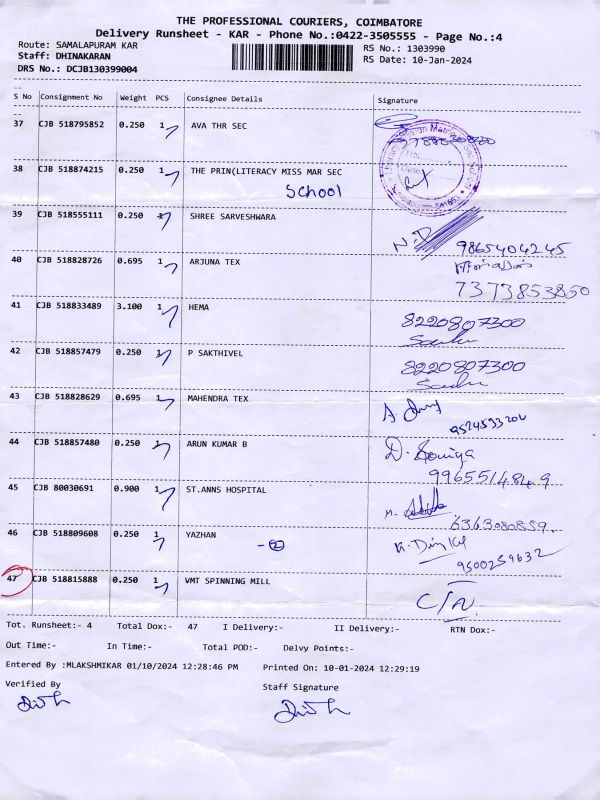 THE PROFESSIONAL COURIERS, COIMBATORE
Delivery Runsheet - KAR - Phone No.:0422-3505555 - Page No.:4
Route: SAMALAPURAM KAR
RS No.: 1303990
Staff: DHINAKARAN
RS Date: 10-Jan-2024
DRS No.: DCJB130399004
S No Consignment No Weight PCS Consignee Details Signature
37 CJB 518795852 0.250 1 AVA THR SEC
38 CJB 518874215 0.250 1 THE PRIN(LITERACY MISS MAR SEC
School
39 CJB 518555111 0.250 1 SHREE SARVESHWARA
9865404245
40 CJB 518828726 0.695 1 ARJUNA TEX
7373853850
41 CJB 518833489 3.100 1 HEMA 8220807300
42 CJB 518857479 0.250 1 P SAKTHIVEL 8220807300
43 CJB 518828629 0.695 1 MAHENDRA TEX
9524593204
44 CJB 518857480 0.250 1 ARUN KUMAR B D. Sowiya
9965514849
45 CJB 80030691 0.900 1 ST.ANNS HOSPITAL M.
6363080859
46 CJB 518809608 0.250 1 YAZHAN - 2
9500259632
47 CJB 518815888 0.250 1 VMT SPINNING MILL C/N
Tot. Runsheet:- 4 Total Dox:- 47 I Delivery:- II Delivery:- RTN Dox:-
Out Time:- In Time:- Total POD:- Delvy Points:-
Entered By :MLAKSHMIKAR 01/10/2024 12:28:46 PM Printed On: 10-01-2024 12:29:19
Verified By Staff Signature